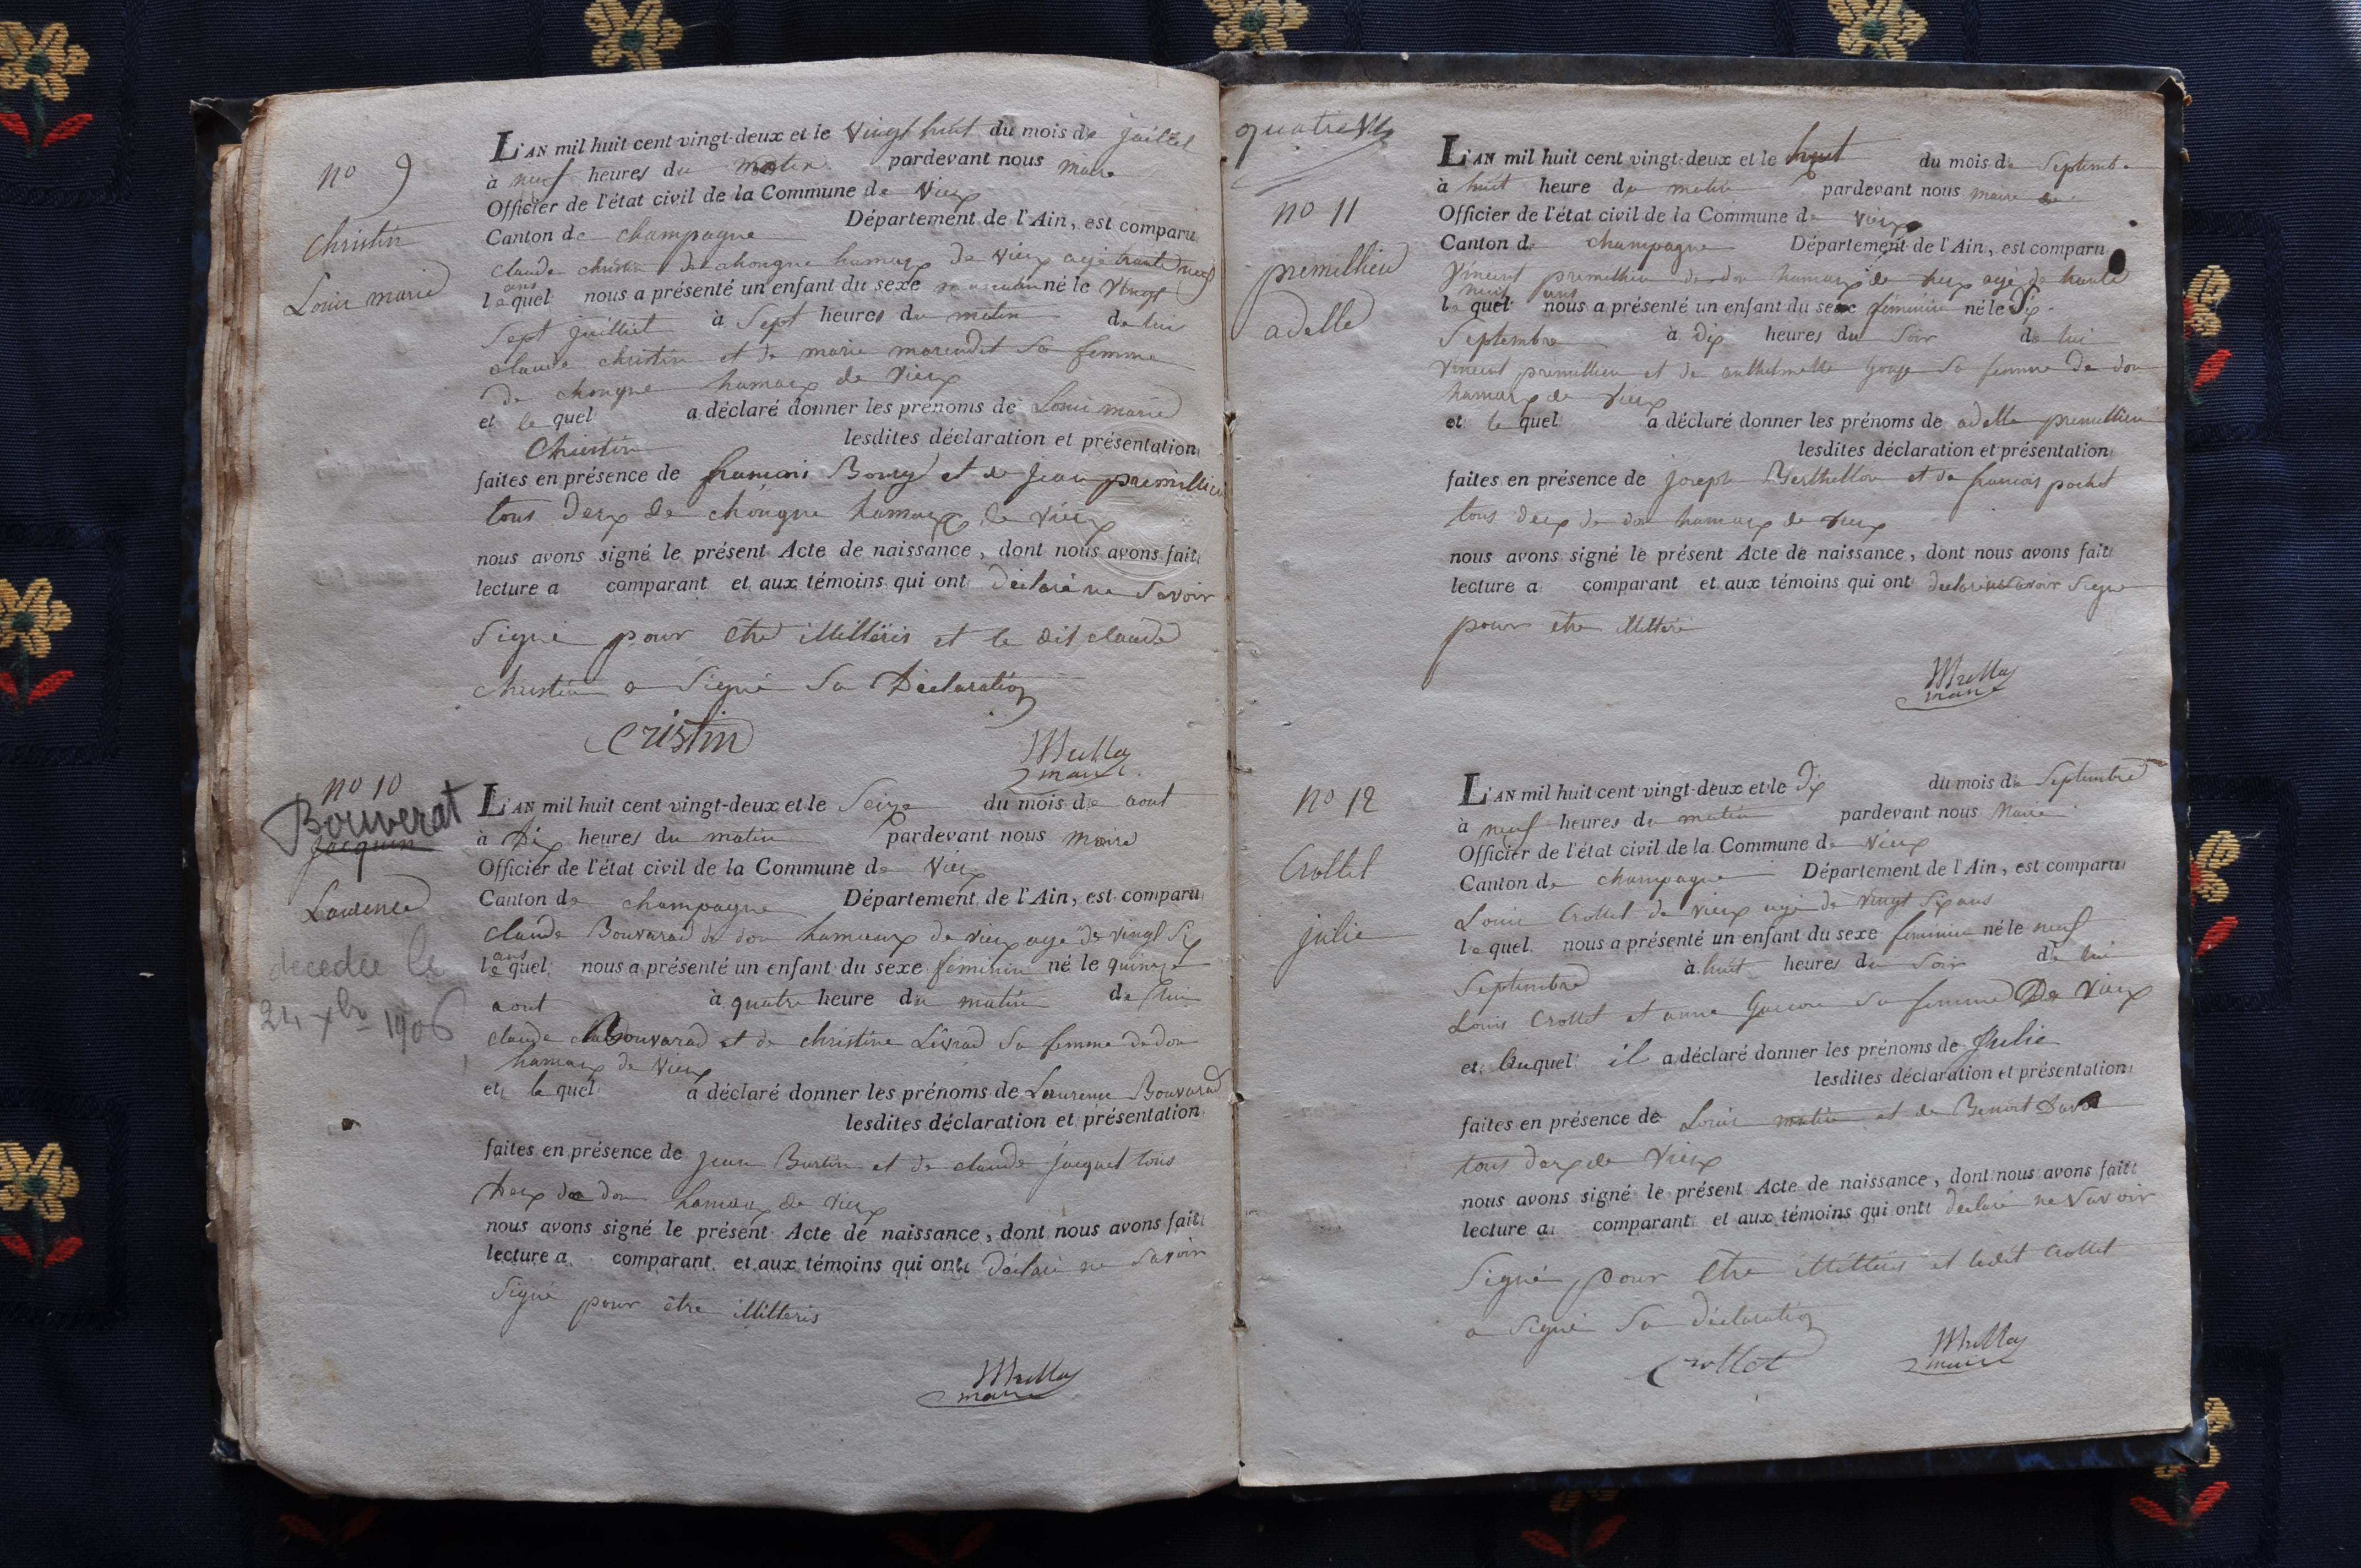 no 9
Christin
Louis marie
L'AN mil huit cent vingt-deux et le vingt huit du mois de juillet
à neuf heures du matin pardevant nous maire
Officier de l'état civil de la Commune de Vieux
Canton de champagne Département de l'Ain, est comparu
claude christin de chongne hamaux de vieux agé trante neuf
ans
lequel nous a présenté un enfant du sexe masculin né le vingt
sept juilliet à sept heures du matin de lui
claude christin et de marie marendet sa femme
de chongne hamaux de vieux
et le quel a déclaré donner les prénoms de Louis marie
Christin lesdites déclaration et présentation
faites en présence de francois Bony et de jean premillieu
tous deux de chongne hamaux de vieux
nous avons signé le présent Acte de naissance, dont nous avons fait
lecture a comparant et aux témoins qui ont déclaré ne savoir
signé pour etre illittéris et le dit claude
christin a signé sa Déclaration
Cristin
maire
no 10
Bouverat
Jacquin
Laurence
decedee le
24 Xbre 1906
L'AN mil huit cent vingt-deux et le seize du mois de aout
à Dix heures du matin pardevant nous maire
Officier de l'état civil de la Commune de Vieux
Canton de champagne Département de l'Ain, est comparu
claude Bouvarad de don hameaux de vieux agé de vingt six
ans
lequel nous a présenté un enfant du sexe feminin né le quinze
aout à quatre heure du matin de lui
claude Bouvarad et de christine Livrad sa femme de don
hamaux de vieux
et le quel a déclaré donner les prénoms de Laurence Bouvarad
lesdites déclaration et présentation
faites en présence de jean Burtin et de claude jacquet tous
deux de don hamaux de vieux
nous avons signé le présent Acte de naissance, dont nous avons fait
lecture a comparant et aux témoins qui ont déclaré ne savoir
signé pour être illitteris
maire
quatre
no 11
premillieu
adelle
L'AN mil huit cent vingt-deux et le huit du mois de septembre
à huit heure du matin pardevant nous maire
Officier de l'état civil de la Commune de Vieux
Canton de champagne Département de l'Ain, est comparu
Vincent premillieu de don hamaux de vieux agé de trante
neuf ans
lequel nous a présenté un enfant du sexe féminin né le six
septembre à dix heures du soir de lui
Vincent premillieu et de anthelmette Gouje sa femme de don
hamaux de vieux
et le quel a déclaré donner les prénoms de adelle premillieu
lesdites déclaration et présentation
faites en présence de joseph Berthellon et de francois pochet
tous deux de don hamaux de vieux
nous avons signé le présent Acte de naissance, dont nous avons fait
lecture a comparant et aux témoins qui ont declaré ne savoir signé
pour etre illitteré
maire
no 12
Crollet
julie
L'AN mil huit cent vingt-deux et le dix du mois de septembre
à neuf heures du matin pardevant nous Maire
Officier de l'état civil de la Commune de Vieux
Canton de champagne Département de l'Ain, est comparu
Louis Crollet de vieux agé de vingt six ans
lequel nous a présenté un enfant du sexe feminin né le neuf
septembre à huit heures du soir de lui
Louis Crollet et anne sa femme De vieux
et auquel il a déclaré donner les prénoms de Julie
lesdites déclaration et présentation
faites en présence de Louis matin et de Benoit
tous deux de vieux
nous avons signé le présent Acte de naissance, dont nous avons fait
lecture a comparant et aux témoins qui ont déclaré ne savoir
signé pour etre illittéris et ledit Crollet
a signé sa déclaration
Crollet
maire